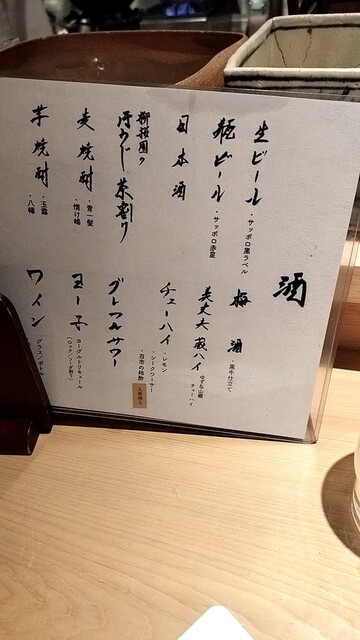 酒
生ビール
・サッポロ黒ラベル
瓶ビール
・サッポロ赤星
日本酒
柳桜園の
ほうじ茶割り
麦焼酎
・青一髪
・情け嶋
芋焼酎
・玉露
・八幡
梅酒
・黒牛仕立て
美丈夫 蔵ハイ
ゆず&山椒
チューハイ
チューハイ
・レモン
・シークワーサー
・四市の柿酢
入荷待ち
グレフルサワー
ヨー子
ヨーグルトリキュール
(ロック/ソーダ割り)
ワイン
グラス/ボトル